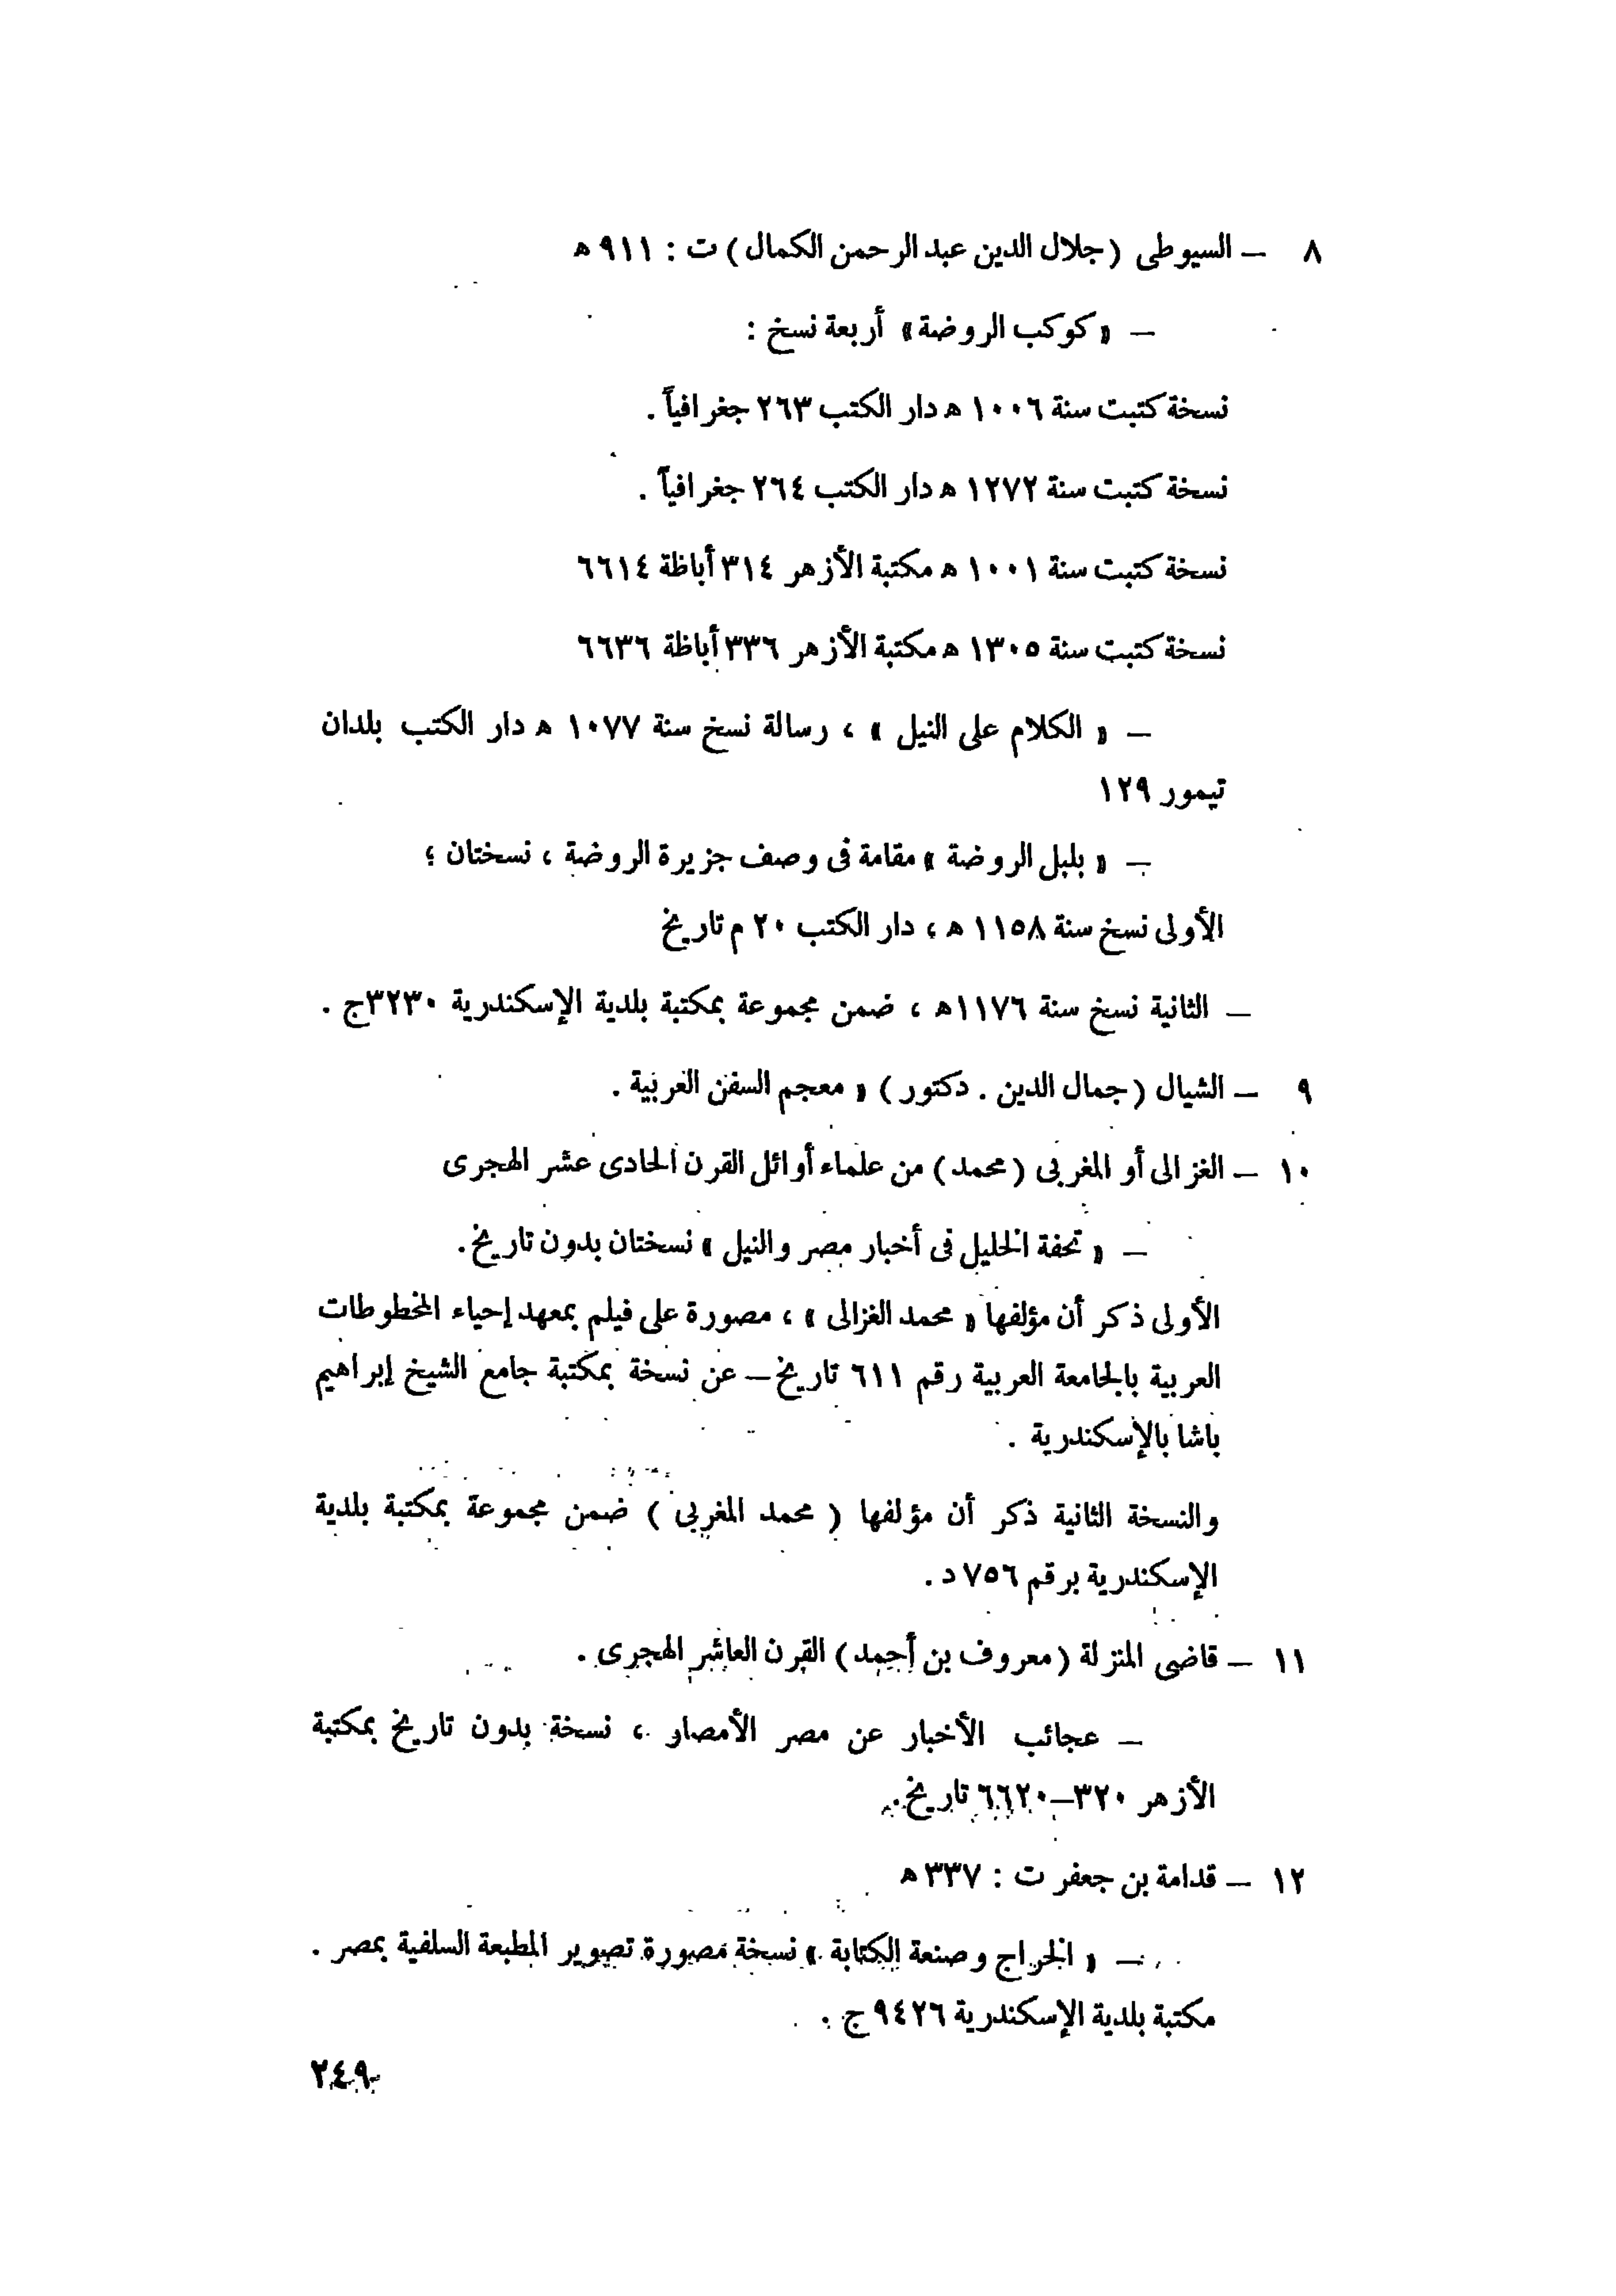 ٨ — السيوطى (جلال الدين عبد الرحمن الكمال) ت : ٩١١ ه
— « كوكب الروضة » أربعة نسخ :
نسخة كتبت سنة ١٠٠٦ ه دار الكتب ٢٦٣ جغرافياً .
نسخة كتبت سنة ١٢٧٢ ه دار الكتب ٢٦٤ جغرافياً .
نسخة كتبت سنة ١٠٠١ ه مكتبة الأزهر ٣١٤ أباظة ٦٦١٤
نسخة كتبت سنة ١٣٠٥ ه مكتبة الأزهر ٣٣٦ أباظة ٦٦٣٦
— « الكلام على النيل » ، رسالة نسخ سنة ١٠٧٧ ه دار الكتب بلدان
تيمور ١٢٩
— « بلبل الروضة » مقامة فى وصف جزيرة الروضة ، نسختان ؛
الأولى نسخ سنة ١١٥٨ ه ، دار الكتب ٢٠ م تاريخ
— الثانية نسخ سنة ١١٧٦ه ، ضمن مجموعة بمكتبة بلدية الإسكندرية ٣٢٣٠ج .
٩ — الشيال (جمال الدين . دكتور) « معجم السفن العربية .
١٠ — الغزالى أو المغربى (محمد) من علماء أوائل القرن الحادى عشر الهجرى
— « تحفة الخليل فى أخبار مصر والنيل » نسختان بدون تاريخ.
الأولى ذكر أن مؤلفها « محمد الغزالى » ، مصورة على فيلم بمعهد إحياء المخطوطات
العربية بالجامعة العربية رقم ٦١١ تاريخ – عن نسخة بمكتبة جامع الشيخ إبراهيم
باشا بالإسكندرية .
والنسخة الثانية ذكر أن مؤلفها ( محمد المغربى ) ضمن مجموعة بمكتبة بلدية
الإسكندرية برقم ٧٥٦ د .
١١ — قاضى المنزلة (معروف بن أحمد) القرن العاشر الهجرى .
— عجائب الأخبار عن مصر الأمصار ، نسخة بدون تاريخ بمكتبة
الأزهر ٣٢٠–٦٦٢٠ تاريخ.
١٢ — قدامة بن جعفر ت : ٣٣٧ ه
— « الخراج وصنعة الكتابة » نسخة مصورة تصوير المطبعة السلفية بمصر .
مكتبة بلدية الإسكندرية ٩٤٢٦ ج .
٢٤٩